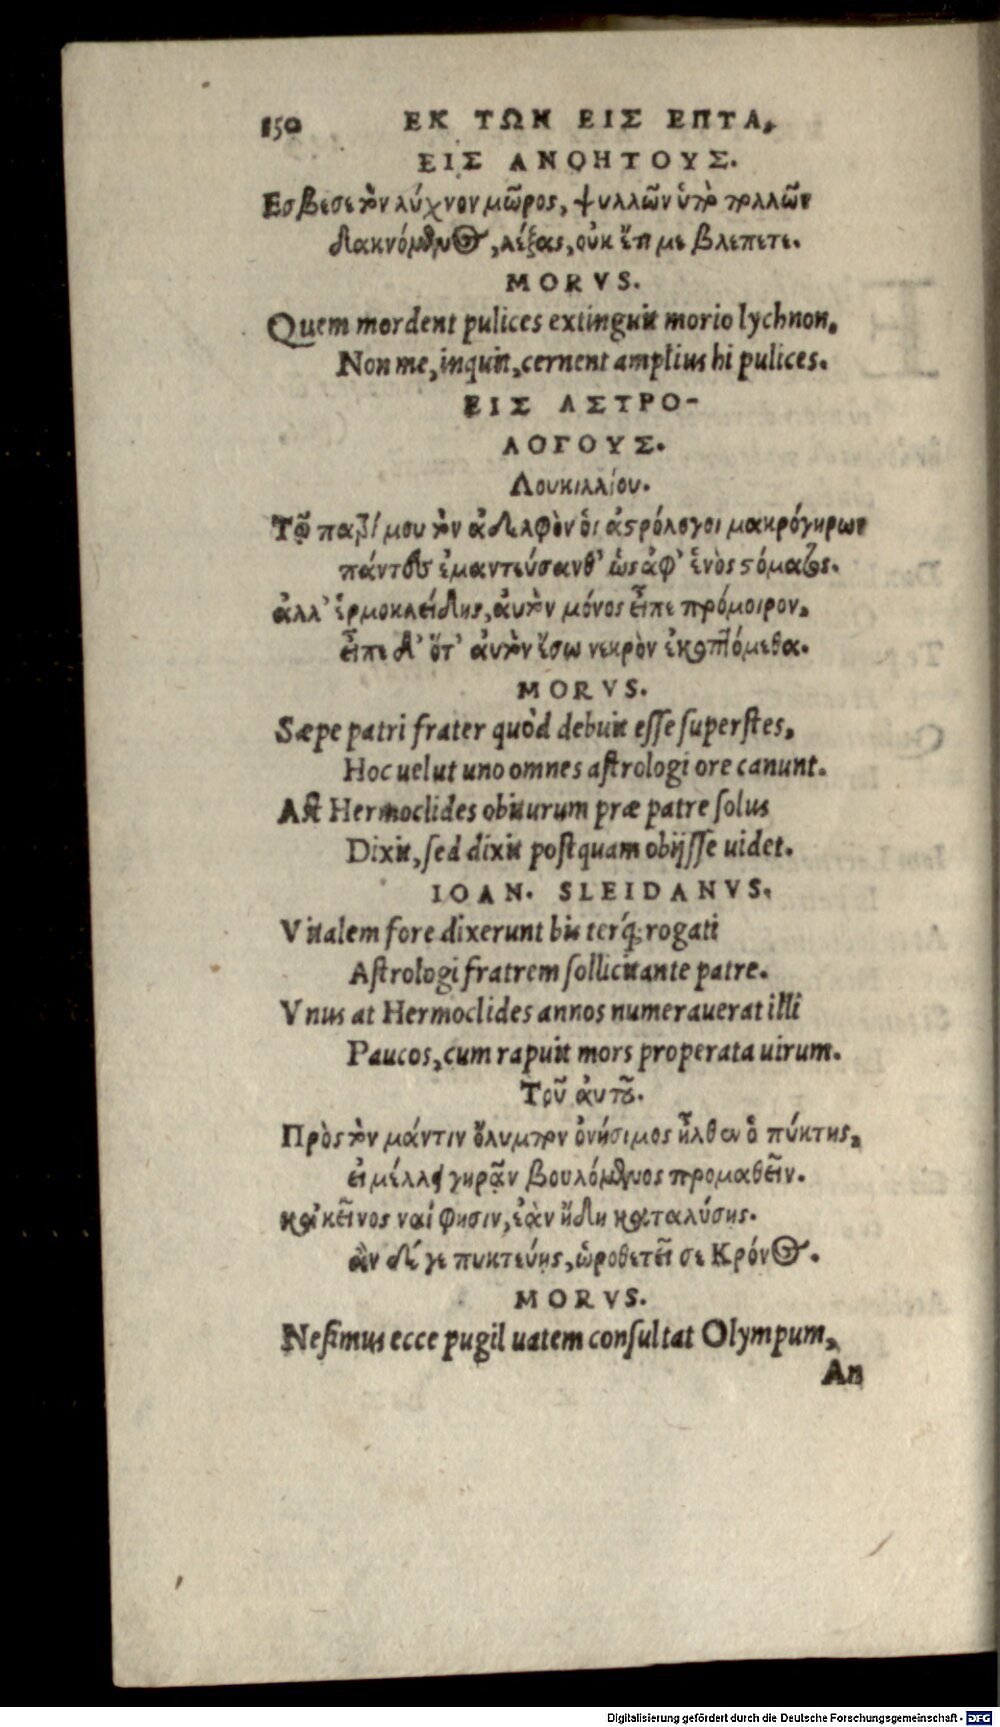 150 ΕΚ ΤΩΝ ΕΙΣ ΕΠΤΑ,
ΕΙΣ ΑΝΟΗΤΟΥΣ.
Εσβεσε τὸν λύχνον μῶρος, ψυλλῶν ὑπὸ πολλῶν
δακνόμενος, λέξας, οὐκ ἔτι με βλεπετε.
MORVS.
Quem mordent pulices extinguit morio lychnon,
Non me, inquit, cernent amplius hi pulices.
ΕΙΣ ΑΣΤΡΟ-
ΛΟΓΟΥΣ.
Λουκιλλίου.
Τῷ πατρί μου τὸν ἀδελφὸν ὁι ἀστρόλογοι μακρόγηρων
πάντες ἐμαντεύσανθ' ὡς ἀφ' ἑνὸς στόματος.
ἀλλ' ἑρμοκλείδης, ἀυτὸν μόνος εἶπε πρόμοιρον,
εἶπε δ' ὅτ' ἀυτὸν ἔσω νεκρὸν ἐκοπτόμεθα.
MORVS.
Sæpe patri frater quòd debuit esse superstes,
Hoc uelut uno omnes astrologi ore canunt.
Ast Hermoclides obiturum præ patre solus
Dixit, sed dixit postquam obijsse uidet.
IOAN. SLEIDANVS.
Vitalem fore dixerunt bis terq́; rogati
Astrologi fratrem sollicitante patre.
Vnus at Hermoclides annos numerauerat illi
Paucos, cum rapuit mors properata uirum.
Τοῦ ἀυτοῦ.
Πρὸς τὸν μάντιν ὄλυμπον ὀνήσιμος ἦλθεν ὁ πύκτης,
εἰ μέλλει γηρᾷν βουλόμενος προμαθεῖν.
κᾀκεῖνος ναί φησιν, ἐὰν ἤδη καταλύσης.
ἂν δέ γε πυκτεύης, ὡροθετεῖ σε Κρόνος.
MORVS.
Nesimus ecce pugil uatem consultat Olympum,
An
Digitalisierung gefördert durch die Deutsche Forschungsgemeinschaft - DFG